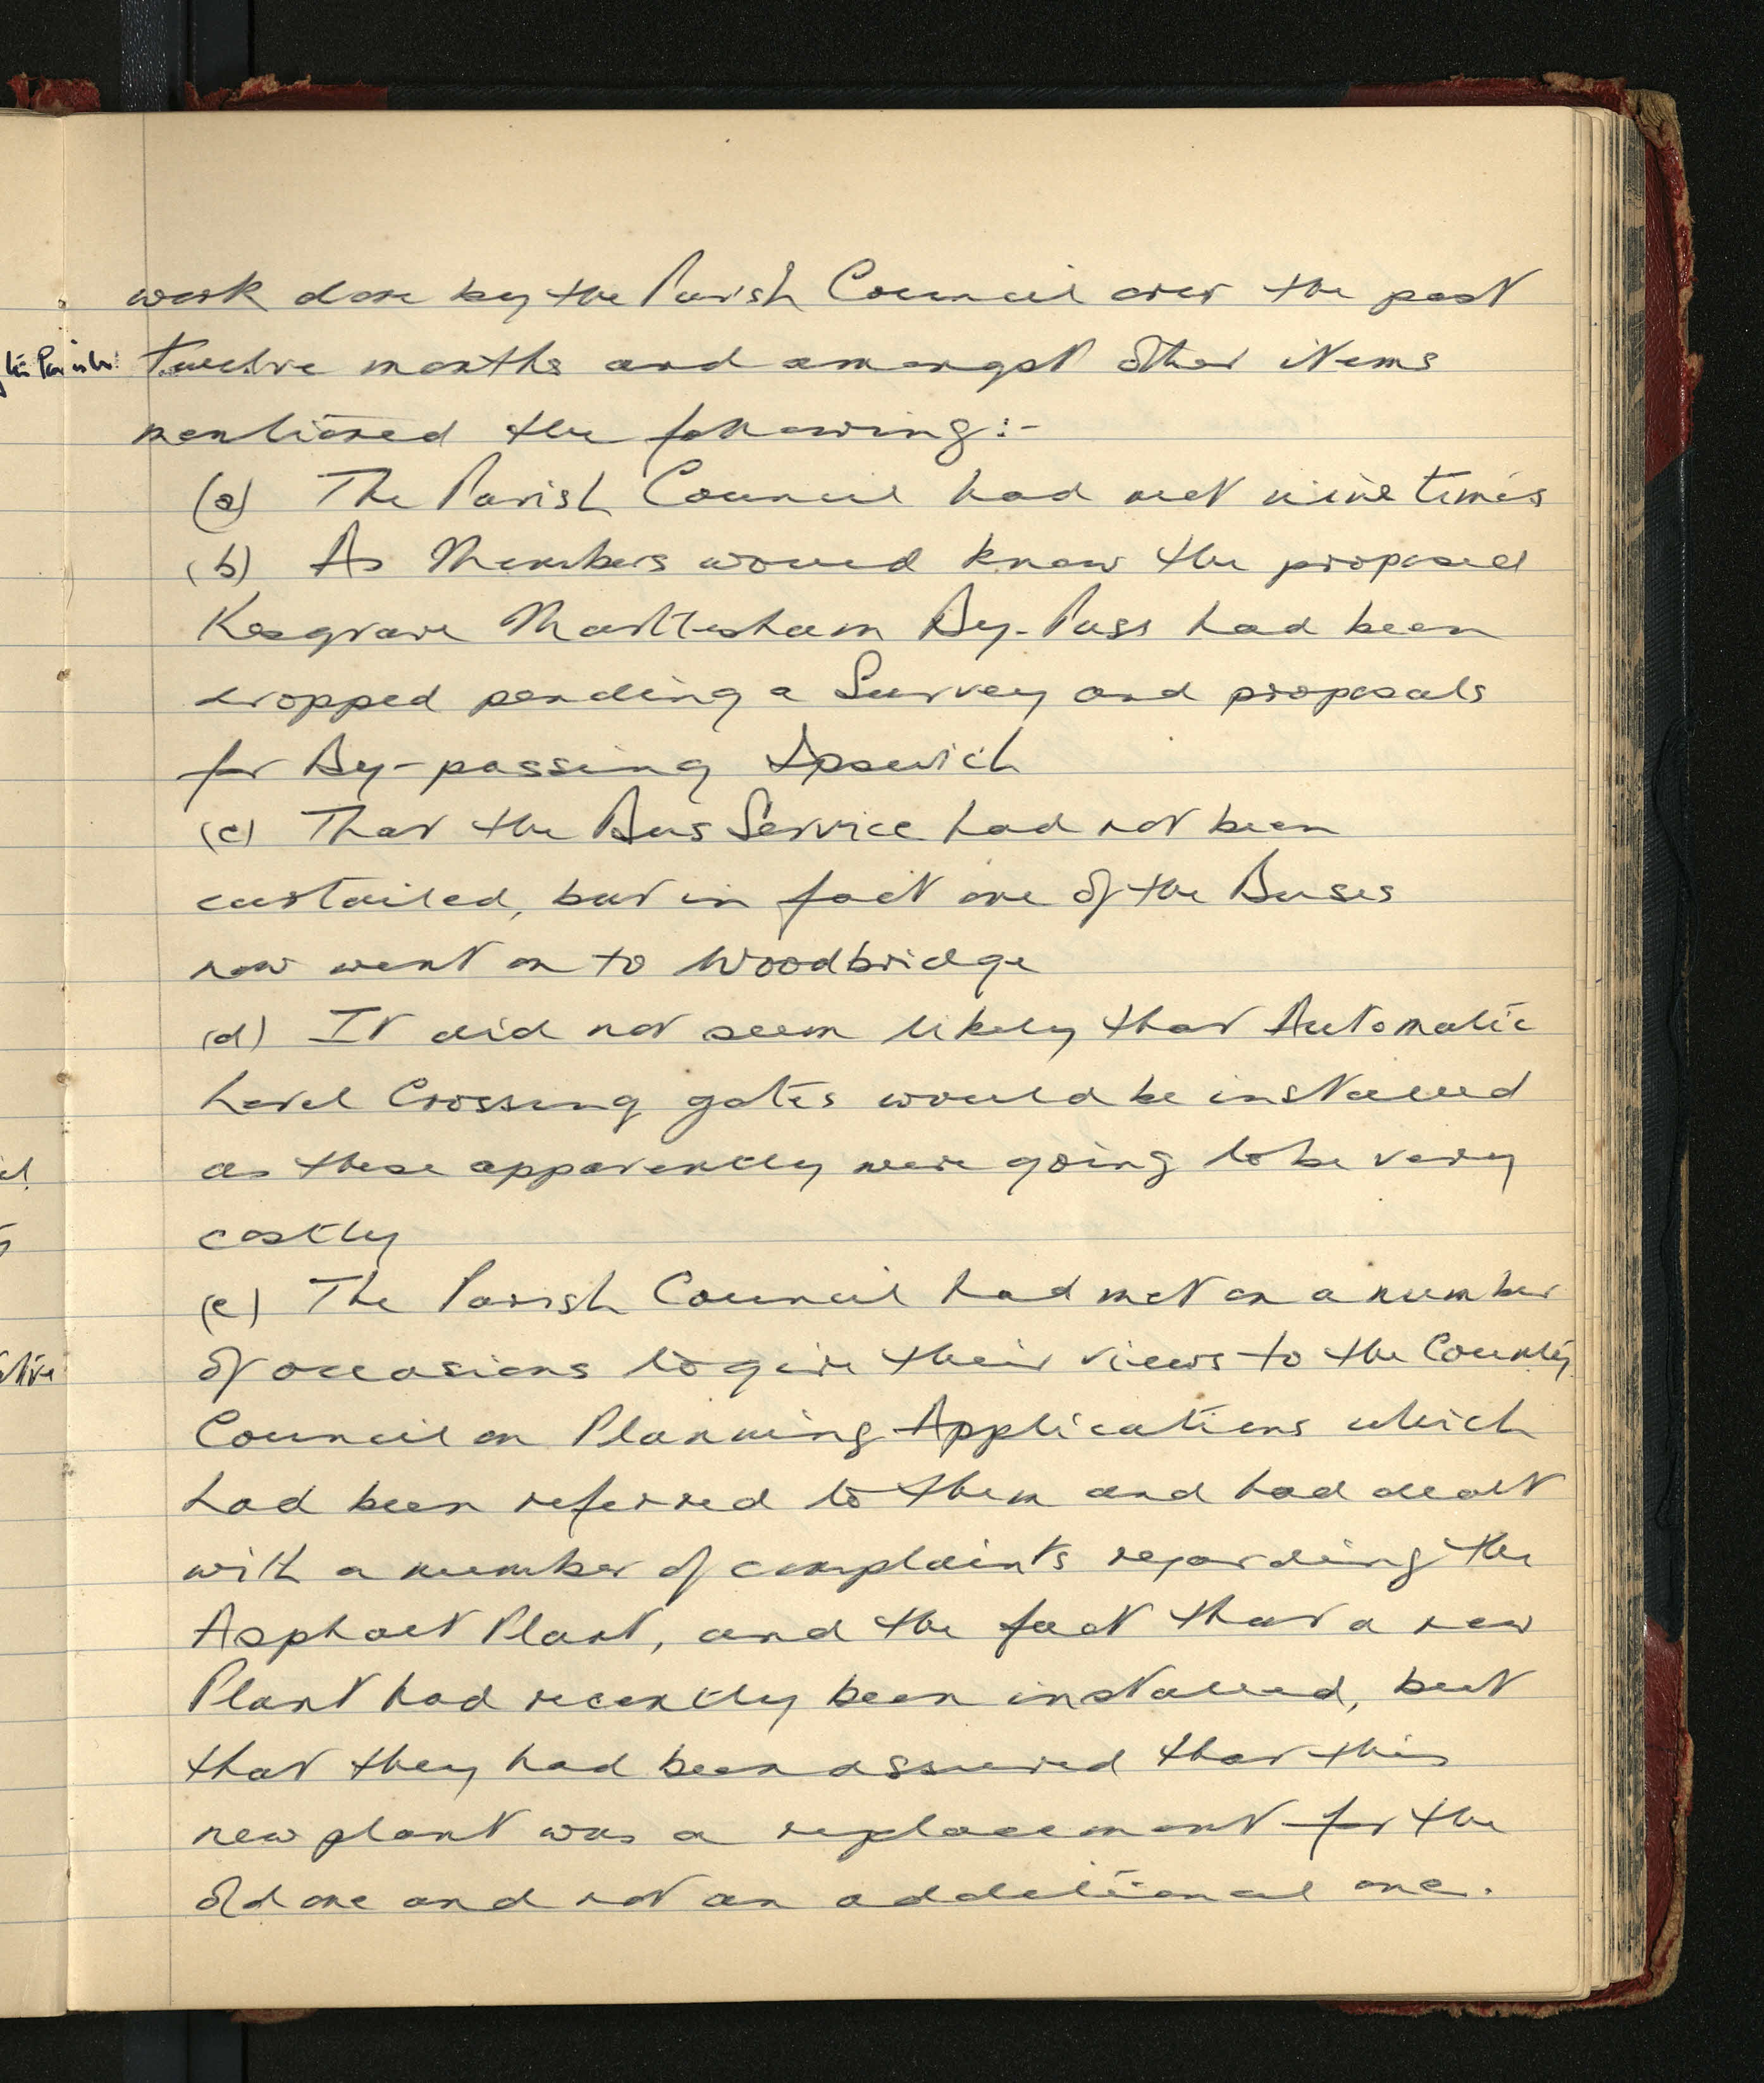 work done by the Parish Council over the past
twelve months and amongst other items
mentioned the following:-
(a) The Parish Council had met nine times
(b) As Members would know the proposed
Kesgrave Martlesham By-Pass had been
dropped pending a Survey and proposals
for By-passing Ipswich
(c) That the Bus Service had not been
curtailed, but in fact one of the Buses
now went on to Woodbridge
(d) It did not seem likely that Automatic
Level Crossing gates would be installed
as these apparently were going to be very
costly
(e) The Parish Council had met on a number
of occasions to give their views to the County
Council on Planning Applications which
had been referred to them and had dealt
with a number of complaints regarding the
Asphalt Plant, and the fact that a new
Plant had recently been installed, but
that they had been assured that this
new plant was a replacement for the
old one and not an additional one.